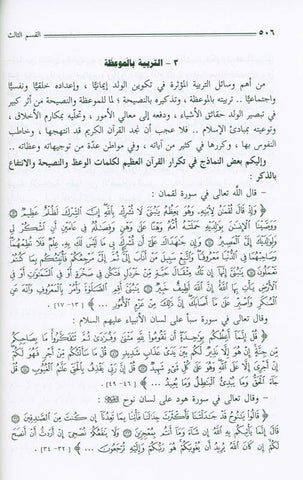 ٥٠٦
القسم الثالث
٣ - التربية بالموعظة
من أهم وسائل التربية المؤثرة في تكوين الولد إيمانيًا ، وإعداده خلقيًا ونفسيًا
واجتماعيًا .. تربيته بالموعظة ، وتذكيره بالنصيحة ؛ لما للموعظة والنصيحة من أثر كبير
في تبصير الولد حقائق الأشياء ، ودفعه إلى معالي الأمور ، وتحلّيه بمكارم الأخلاق ،
وتوعيته بمبادئ الإسلام .. فلا عجب أن نجد القرآن الكريم قد انتهجها ، وخاطب
النفوس بها ، وكررها في كثير من آياته ، وفي مواطن عدّة من توجيهاته وعظاته ..
وإليكم بعض النماذج في تكرار القرآن العظيم لكلمات الوعظ والنصيحة والانتفاع
بالذكر :
- قال الله تعالى في سورة لقمان :
﴿ وَإِذْ قَالَ لُقْمَٰنُ لِابْنِهِ وَهُوَ يَعِظُهُ يَٰبُنَيَّ لَا تُشْرِكْ بِاللَّهِ إِنَّ الشِّرْكَ لَظُلْمٌ عَظِيمٌ
وَوَصَّيْنَا الْإِنسَٰنَ بِوَٰلِدَيْهِ حَمَلَتْهُ أُمُّهُ وَهْنًا عَلَىٰ وَهْنٍ وَفِصَٰلُهُ فِي عَامَيْنِ أَنِ اشْكُرْ لِي
وَلِوَٰلِدَيْكَ إِلَيَّ الْمَصِيرُ وَإِن جَٰهَدَاكَ عَلَىٰ أَن تُشْرِكَ بِي مَا لَيْسَ لَكَ بِهِ عِلْمٌ فَلَا تُطِعْهُمَا
وَصَاحِبْهُمَا فِي الدُّنْيَا مَعْرُوفًا وَاتَّبِعْ سَبِيلَ مَنْ أَنَابَ إِلَيَّ ثُمَّ إِلَيَّ مَرْجِعُكُمْ فَأُنَبِّئُكُم بِمَا كُنتُمْ
تَعْمَلُونَ يَٰبُنَيَّ إِنَّهَا إِن تَكُ مِثْقَالَ حَبَّةٍ مِّنْ خَرْدَلٍ فَتَكُن فِي صَخْرَةٍ أَوْ فِي السَّمَٰوَٰتِ أَوْ فِي
الْأَرْضِ يَأْتِ بِهَا اللَّهُ إِنَّ اللَّهَ لَطِيفٌ خَبِيرٌ يَٰبُنَيَّ أَقِمِ الصَّلَوٰةَ وَأْمُرْ بِالْمَعْرُوفِ وَانْهَ عَنِ
الْمُنكَرِ وَاصْبِرْ عَلَىٰ مَا أَصَابَكَ إِنَّ ذَٰلِكَ مِنْ عَزْمِ الْأُمُورِ ... ﴾ [ ١٣ - ١٧ ] .
- وقال تعالى في سورة سبأ على لسان الأنبياء عليهم السلام :
﴿ قُلْ إِنَّمَا أَعِظُكُم بِوَٰحِدَةٍ أَن تَقُومُوا لِلَّهِ مَثْنَىٰ وَفُرَٰدَىٰ ثُمَّ تَتَفَكَّرُوا مَا بِصَاحِبِكُم
مِّن جِنَّةٍ إِنْ هُوَ إِلَّا نَذِيرٌ لَّكُم بَيْنَ يَدَيْ عَذَابٍ شَدِيدٍ قُلْ مَا سَأَلْتُكُم مِّنْ أَجْرٍ فَهُوَ لَكُمْ
إِنْ أَجْرِيَ إِلَّا عَلَى اللَّهِ وَهُوَ عَلَىٰ كُلِّ شَيْءٍ شَهِيدٌ قُلْ إِنَّ رَبِّي يَقْذِفُ بِالْحَقِّ عَلَّٰمُ الْغُيُوبِ قُلْ
جَاءَ الْحَقُّ وَمَا يُبْدِئُ الْبَٰطِلُ وَمَا يُعِيدُ ... ﴾ [ ٤٦ - ٤٩ ] .
- وقال تعالى في سورة هود على لسان نوح :
﴿ قَالُوا يَٰنُوحُ قَدْ جَٰدَلْتَنَا فَأَكْثَرْتَ جِدَٰلَنَا فَأْتِنَا بِمَا تَعِدُنَا إِن كُنتَ مِنَ الصَّٰدِقِينَ
قَالَ إِنَّمَا يَأْتِيكُم بِهِ اللَّهُ إِن شَاءَ وَمَا أَنتُم بِمُعْجِزِينَ وَلَا يَنفَعُكُمْ نُصْحِي إِنْ أَرَدتُّ أَنْ أَنصَحَ
لَكُمْ إِن كَانَ اللَّهُ يُرِيدُ أَن يُغْوِيَكُمْ هُوَ رَبُّكُمْ وَإِلَيْهِ تُرْجَعُونَ ... ﴾ [ ٣٢ - ٣٤ ] .